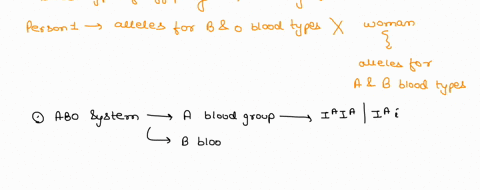 Person 1 → alleles for B & O blood types X woman
alleles for
A & B blood types
⊙ ABO System → A blood group → IᴬIᴬ | Iᴬi
→ B bloo